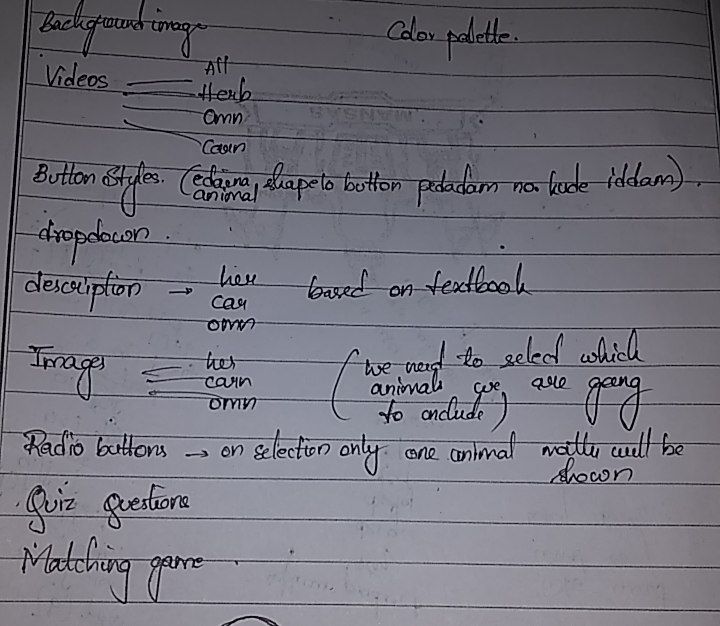 Background image Color palette.
Videos All
Herb
Omn
Carn
Button Styles. (edaina animal shapelo button pedadam na kude iddam).
dropdown.
description → her based on textbook
car
omn
Images her (we need to select which
carn animals we are going
omn to include)
Radio buttons → on selection only one animal will be
shown
Quiz questions
Matching game.